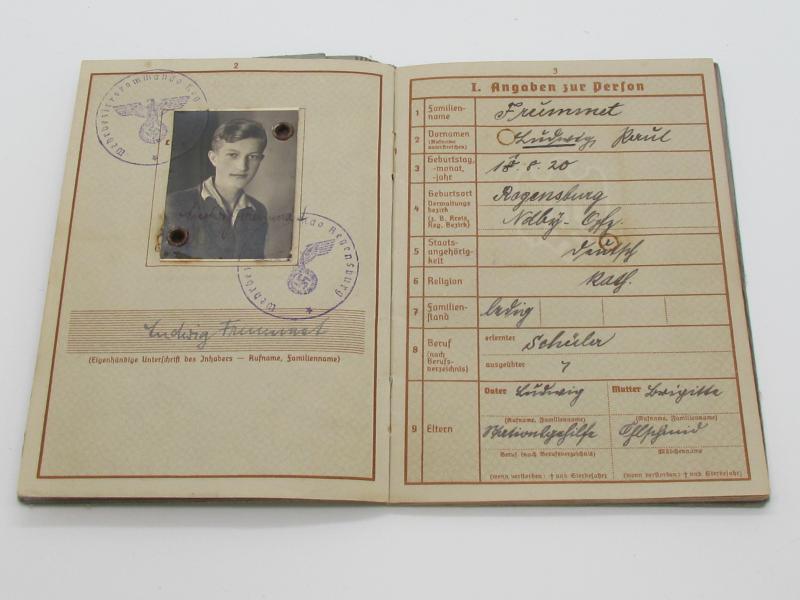 2
Wehrbezirkskommando Reg
Wehrbez
do Regensburg
Ludwig Frummet
(Eigenhändige Unterschrift des Inhabers — Rufname, Familienname)
3
I. Angaben zur Person
1 Familien-
name
Frummet
2 Vornamen
(Rufname
unterstreichen)
Ludwig, Paul
3 Geburtstag,
-monat,
-jahr
18. 8. 20
4 Geburtsort
Verwaltungs
bezirk
(z. B. Kreis,
Reg. Bezirk)
Regensburg
5 Staats-
angehörig-
keit
deutsch
6 Religion
kath.
7 Familien-
stand
ledig
8 Beruf
(nach
Berufs-
verzeichnis)
erlernter Schüler
ausgeübter
9 Eltern
Vater Ludwig
(Rufname, Familienname)
Beruf (nach Berufsverzeichnis)
(wenn verstorben: † und Sterbejahr)
Mutter Brigitte
(Rufname, Familienname)
Ohlschmid
Mädchenname
(wenn verstorben: † und Sterbejahr)